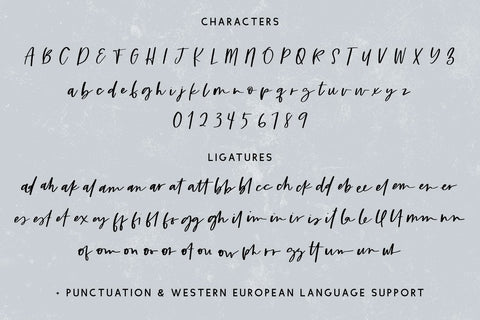 CHARACTERS
A B C D E F G H I J K L M N O P Q R S T U V W X Y Z
a b c d e f g h i j k l m n o p q r s t u v w x y z
0 1 2 3 4 5 6 7 8 9
LIGATURES
ad ah ak al am an ar at att bb bl cc ch ck dd eb ee el em en er
es est et ex ey ff fi fl fo gg gh il im in ir is it la le ll lt mm nn
of om on oo or ot ou ow ph rr ss tt um un ut
+ PUNCTUATION & WESTERN EUROPEAN LANGUAGE SUPPORT